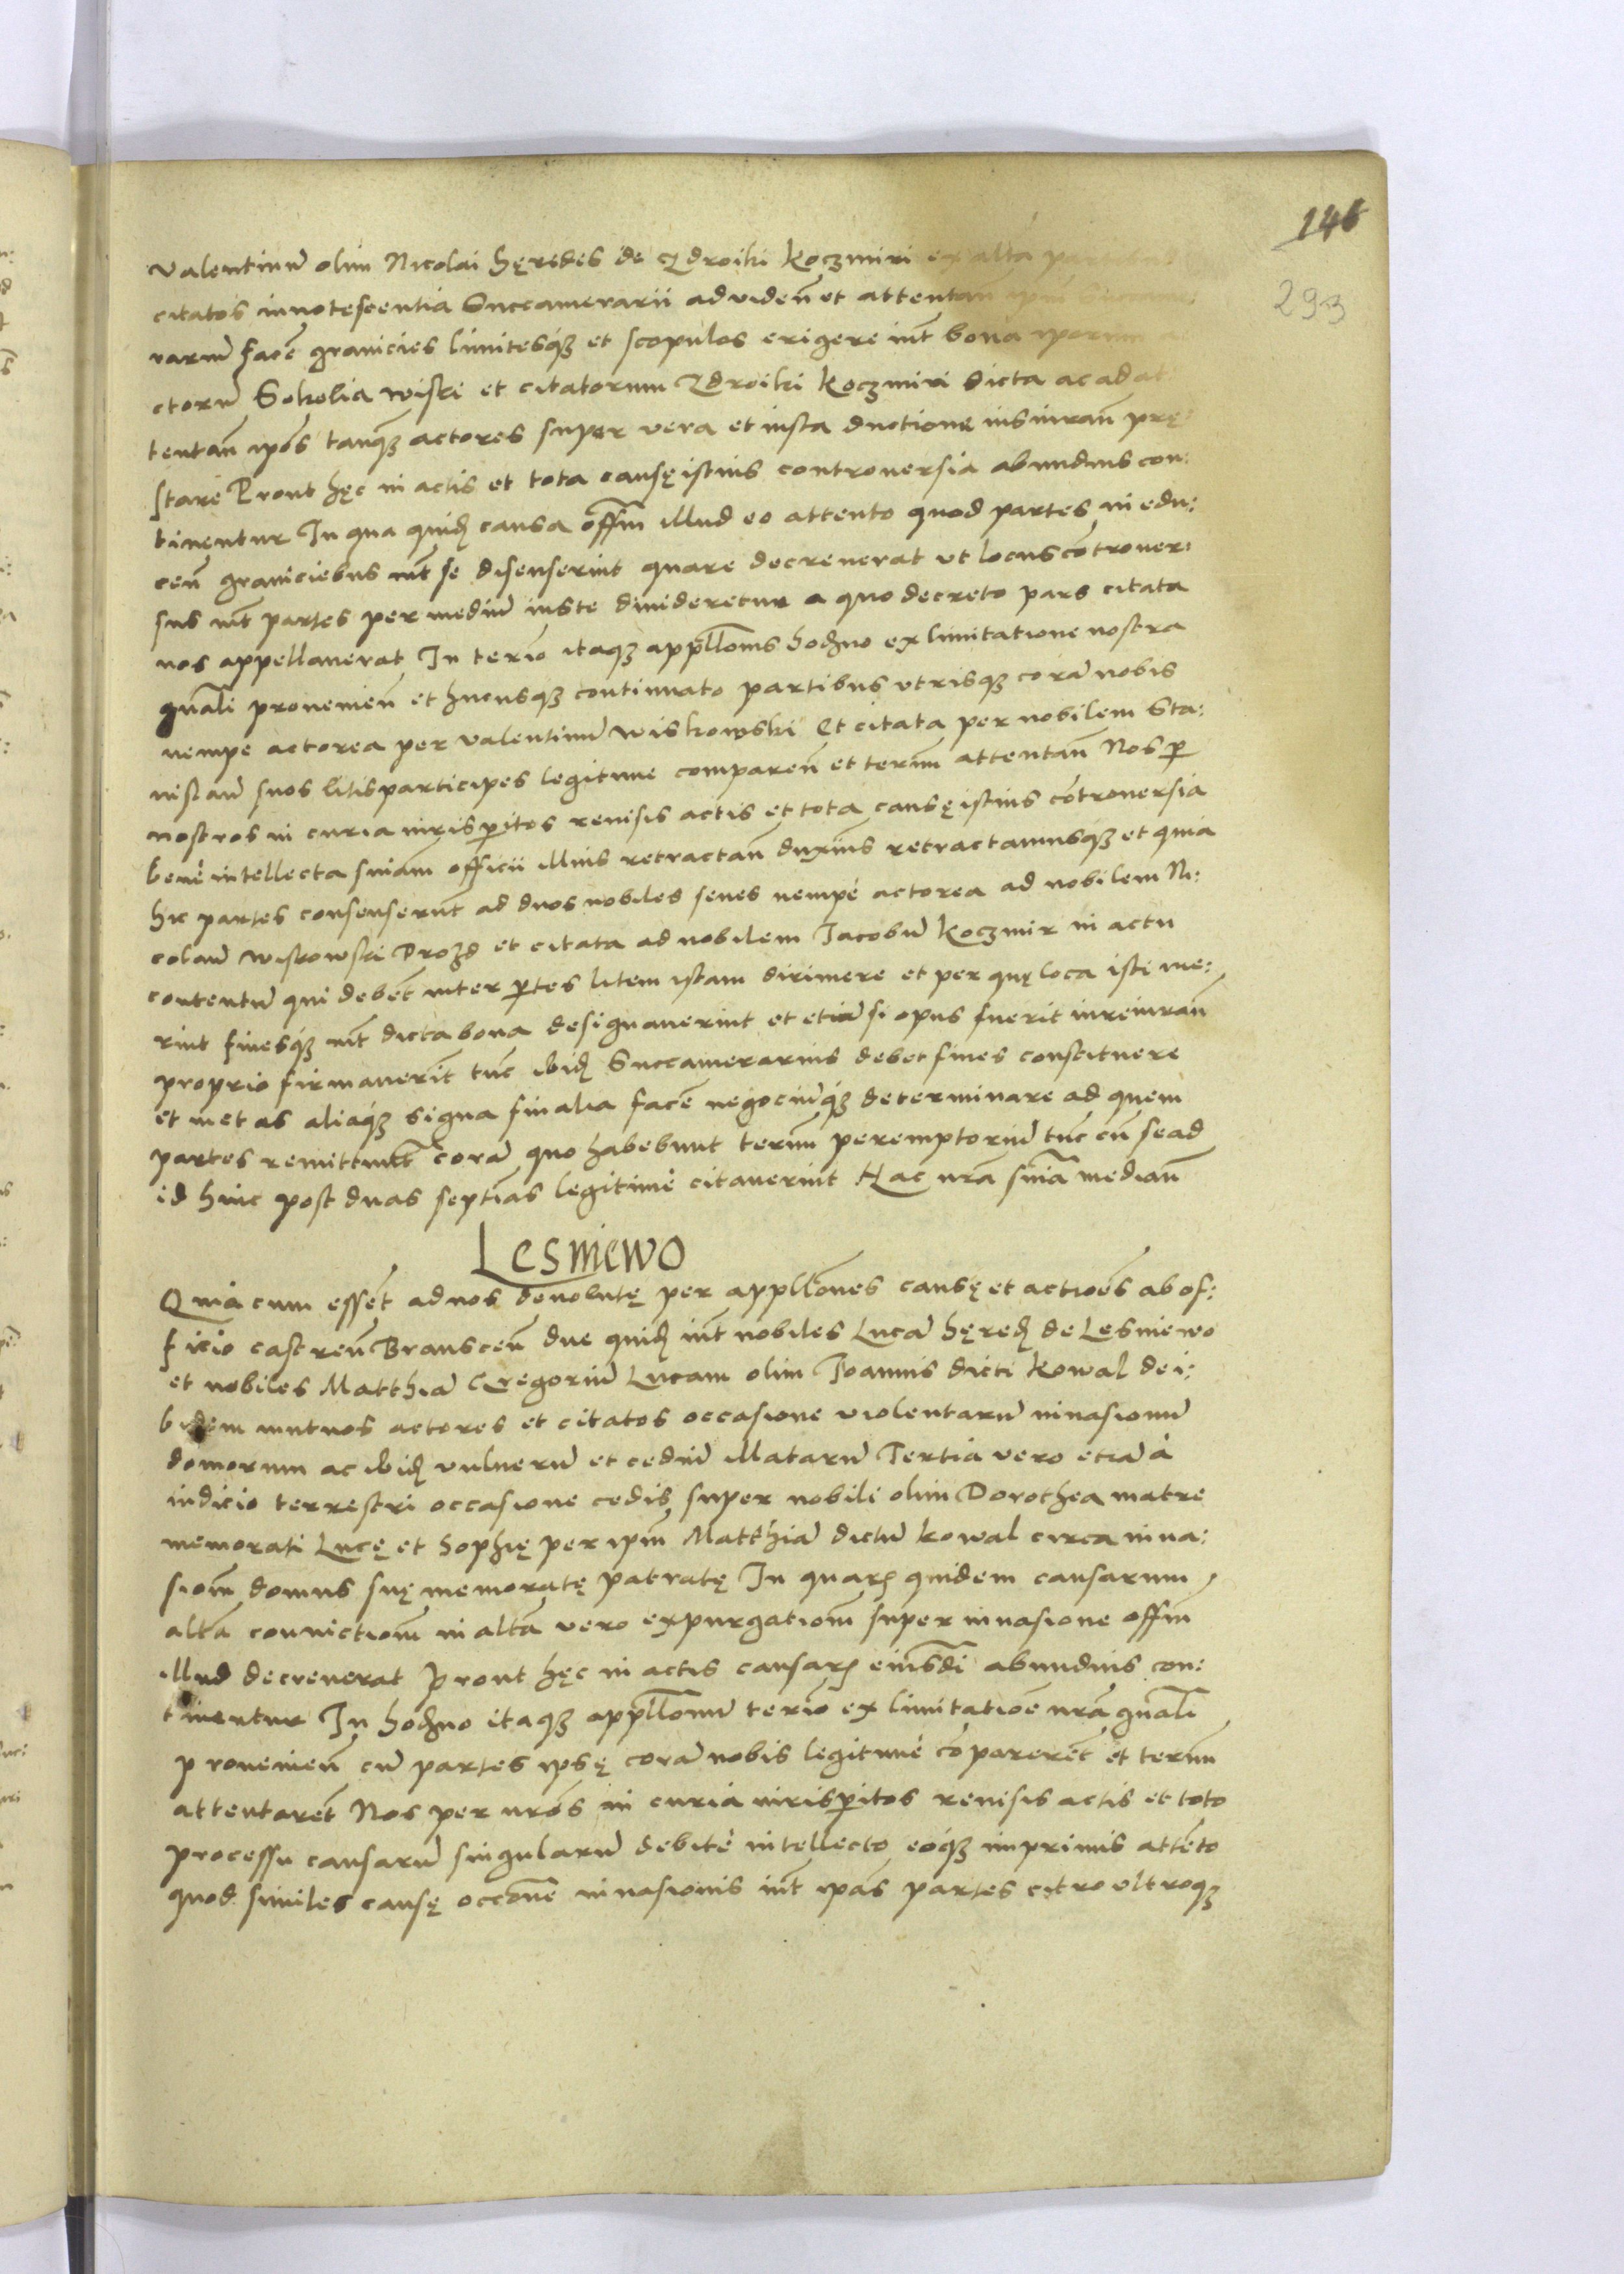 146
293
Valentinũ olim Nicolai hęredes de Zdroiki Koczmiri ex altã
citatos innotescentia Succamerarii ad videñ et attentañ
rariũ facẽ granicies limitesq́ꝫ et scopulos erigere int̃ bona ipõrum a
ctorũ Sokolia wiski et citatorum Zdroiki Koczmiri dicta ac ad at
tentañ ipõs tanqꝫ actores super vera et iusta ductione iusiurañ prę
stare Prout hęc in actis et tota causę istius controuersia abundius con:
tinentur In qua quid̨ causa offm̃ illud eo attento quod partes in edu:
ceñ graniciebus int̃ se disenserint quare decreuerat vt locus cõtrouer:
sus int̃ partes per mediũ iuste diuideretur a quo decreto pars citata
nos appellauerat In term̃o itaqꝫ appll̃onis hodr̃no ex limitatione nostra
gnãli prouenieñ et hucusqꝫ continuato partibus vtrisqꝫ corã nobis
nempe actorea per valentinũ wiskowski Et citata per nobilem Sta:
nislaũ suos litisparticipes legitime compareñ et term̃ attentañ Nos p̱
nostros in curia iurisp̱itos reuisis actis et tota causę istius cõtrouersia
benè intellecta sniam officii illius retractañ duximus retractamusq́ꝫ et quia
hic partes consenserunt ad duos nobiles senes nempè actorea ad nobilem Ni:
colaũ wiskowski Drozd et citata ad nobilem Jacobũ Koczmir in actu
contentũ qui debẽt inter p̱tes litem istam dirimere et per quę loca isti ine:
rint finesq́ꝫ int̃ dicta bona designauerint et etiã si opus fuerit iureiurañ
proprio firmauerĩt tũc ibid̨ Succamerarius debet fines constituere
et metas aliaq́ꝫ signa finalia facẽ negociũq́ꝫ determinare ad quem
partes remittimus corã quo habebunt term̃ peremptoriũ tũc cũ se ad
id hinc post duas septĩas legitimè citauerint Hac nrã snĩa mediañ
Lesniewo
Quia cum essẽt ad nos deuolutę per appll̃ones causę et actiõẽs ab of:
ficio castreñ Branscen̄ due quid̨ int̃ nobiles Lucã hęred̨ de Lesniewo
et nobiles Matthiã Gregoriũ Lucam olim Joannis dicti Kowal de i:
bidem mutuos actores et citatos occasione violentarũ inuasionũ
domorum ac ibid̨ vulnerũ et cediũ illatarũ Tertia vero etiã à
iudicio terrestri occasione cedis super nobili olim Dorothea matre
memorati Lucę et Sophię per ipm̃ Matthiã dictũ Kowal circa inua:
siom̃ domus suę memoratę patratę In quarꝝ quidem causarum
altã conuictiom̃ in altã vero expurgatiom̃ super inuasione offm̃
illud decreuerat Prout hęc in actis causarꝝ eiusdi abundius con:
tinentur In hodr̃no itaqꝫ appll̃onũ term̃o ex limitatiõe nrã gnãli
prouenieñ cũ partes ipsę corã nobis legitimè cõparerẽt et term̃
attentarẽt Nos per nrõs in curia iurisp̱itos reuisis actis et toto
processu causarũ singularũ debitè intellecto eoq́ꝫ inprimis attẽto
quod similes causę occõne inuasionis int̃ ipãs partes citro vltroqꝫ